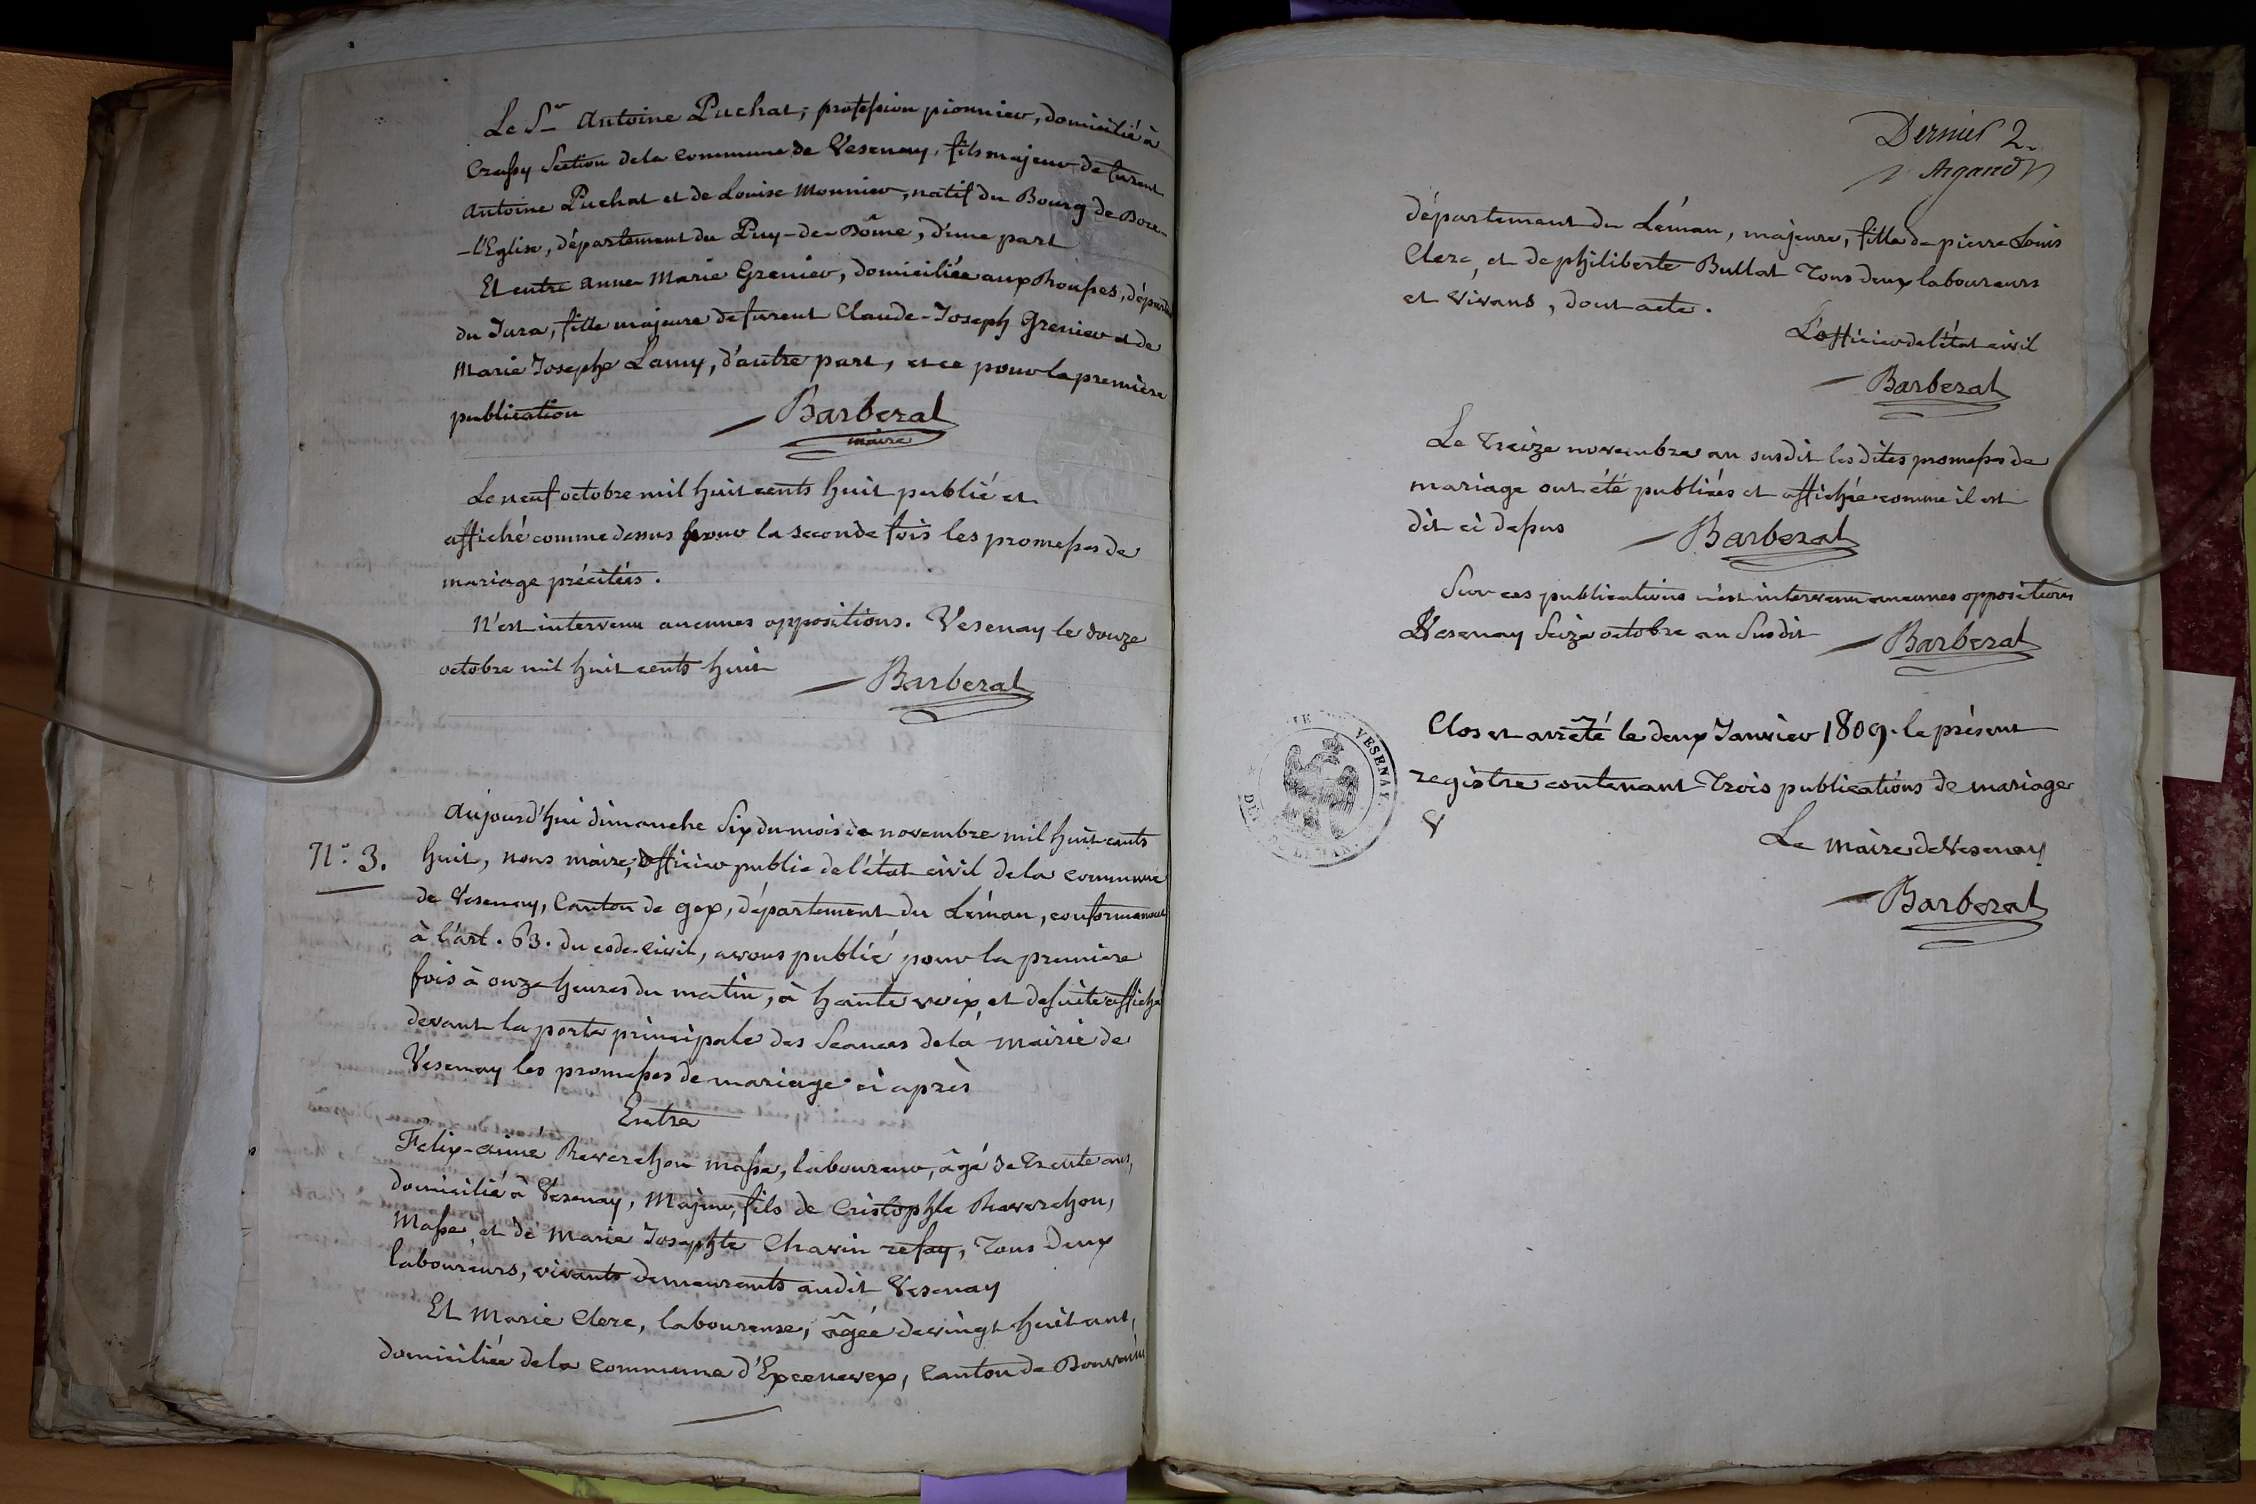 Le Sr Antoine Puchat, profession pionnier, domicilié à
Crassy Section de la commune de Vesenay, fils majeur de furent
Antoine Puchat et de Louise Monnier, natif du Bourg de Bore-
-l'Eglise, département du Puy-de-Dôme, d'une part
Et entre anne Marie Grenier, domiciliée aux Rousses, départ.
du Jura, fille majeure de furent Claude-Joseph Grenier et de
Marie Josephe Lamy, d'autre part, et ce pour la première
publication Barberat
maire
Le neuf octobre mil huit cents huit publié et
affiché comme dessus pour la seconde fois les promesses de
mariage précitées.
N'est intervenu aucunes oppositions. Vesenay le douze
octobre mil huit cents huit Barberat
Aujourd'hui dimanche Six du mois de novembre mil huit cents
N.° 3. huit, nous maire, officier public de l'état civil de la commune
de Vesenay, Canton de gex, département du Léman, conformément
à l'art. 63. du code civil, avons publié pour la première
fois à onze heures du matin, à haute voix, et de suite affiché
devant la porte principale des Séances de la mairie de
Vesenay les promesses de mariage ci après
Entre
Felix-aimé Reverchon masse, laboureur, âgé de trente ans,
domicilié à Vesenay, Majeur, fils de Cristophle Reverchon,
Masse, et de Marie Josephte Chavin refay, Tous deux
laboureurs, vivants demeurants audit Vesenay
Et Marie Clerc, laboureuse, âgée de vingt huit ans,
domiciliée de la commune d'Excenevex, Canton de Bonvenu
Dernier 2.
Argand
département du Léman, majeure, fille de pierre Louis
Clerc, et de philiberte Bullat Tous deux laboureurs
et vivans, dont acte.
L'officier de l'état civil
Barberat
Le Treize novembre an susdit les dites promesses de
mariage ont été publiées et affichée comme il est
dit ci dessus Barberat
Sur ces publications n'est intervenu aucunes oppositions
Vesenay Seize octobre an Susdit Barberat
Clos et arrêté le deux Janvier 1809. le présent
registre contenant Trois publications de mariage
VESENAY
Le maire de Vesenay
Barberat